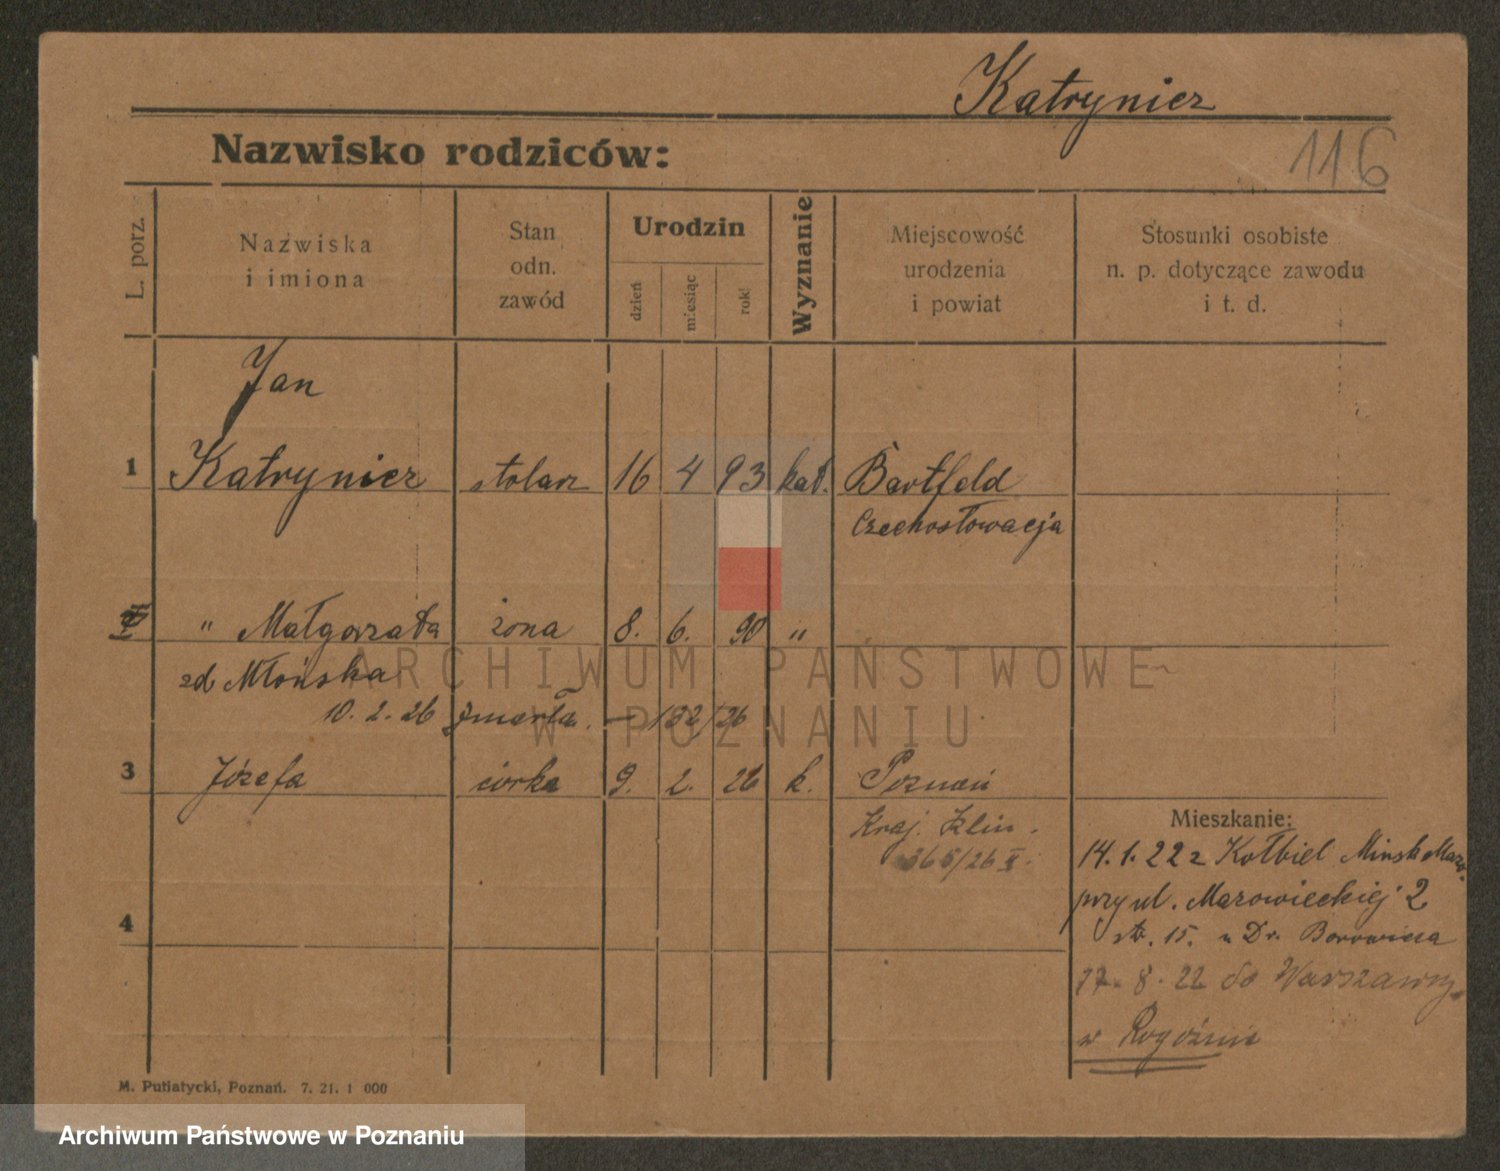 Katryniez
116
Nazwisko rodziców:
L. porz.
Nazwiska
i imiona
Stan
odn.
zawód
Urodzin
dzień
miesiąc
rok
Wyznanie
Miejscowość
urodzenia
i powiat
Stosunki osobiste
n. p. dotyczące zawodu
i t. d.
Jan
1 Katryniez stolarz 16 4 93 kat. Bartfeld
Czechosłowacja
" Małgorzata żona 8. 6. 90 "
zd Młońska
10. 2. 26 zmarła. — 132/26
3 Józefa córka 9. 2. 26 k. Poznań
Kraj. Klin.
365/26 II.
4
Mieszkanie:
14. 1. 22 z Kołbiel Mińsk Mazo.
przy ul. Mazowieckiej 2
str. 15. u Dr. Borowicza
17. 8. 22 do Warszawy
w Rogoźnie
M. Putiatycki, Poznań. 7. 21. 1 000
ARCHIWUM PAŃSTWOWE
W POZNANIU
Archiwum Państwowe w Poznaniu